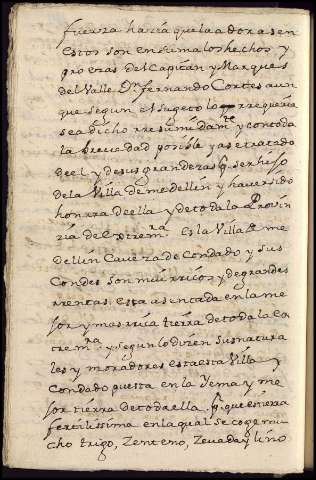 fuerza hazia que la adorasen
Estos son en suma los hechos y
proezas del Capitan y Marques
del Valle Dn fernando Cortes aun
que segun el sugeto lo rrequeria
sea dicho rresumidamte y con toda
la brevedad posible y ase tratado
de el y de sus grandezas pr. ser hijo
de la Villa de medellin y haver sido
honrra de ella y de toda la Provin
zia de Extremra. Es la Villa de me
dellin Caveza de Condado y sus
Condes son mui rricos y de grandes
rrentas. Esta asentada en la me
jor y mas rrica tierra de toda la Ex
tremra. y segun lo dizen sus natura
les y moradores esta esta Villa y
Condado puesta en la Yema y me
jor tierra de toda ella. pr. que es tierra
fertilissima en la qual se coge mu
cho trigo, Zenteno, Zevada y lino